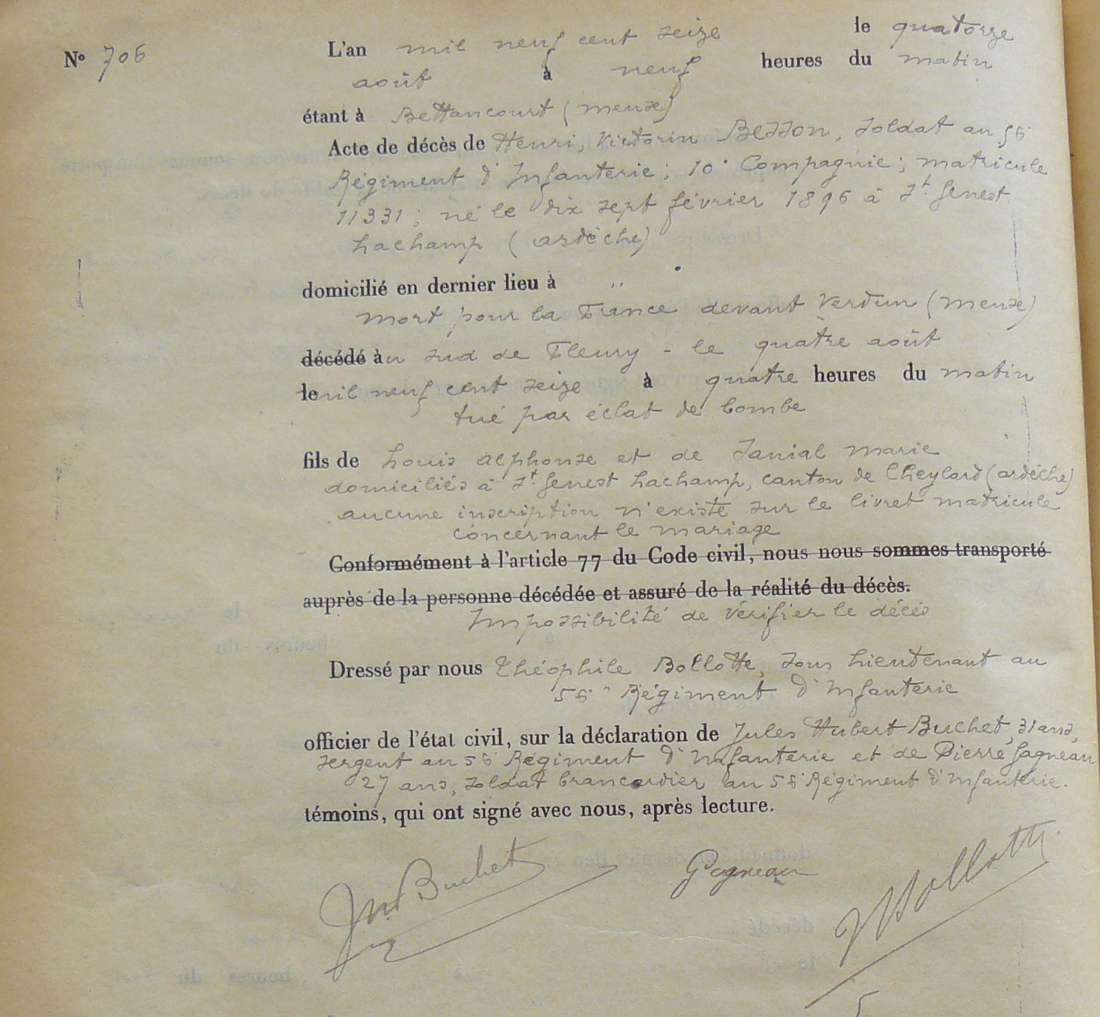 N° 706
L'an mil neuf cent seize le quatorze
août à neuf heures du matin
étant à Bettancourt (meuse)
Acte de décès de Henri, Victorin BESSON, soldat au 56
Régiment d'Infanterie; 10° Compagnie; matricule
11331; né le dix sept février 1896 à St Genest
Lachamp (ardèche)
domicilié en dernier lieu à ,,
mort pour la France devant Verdun (meuse)
décédé à au sud de Fleury - le quatre août
le mil neuf cent seize à quatre heures du matin
tué par éclat de bombe
fils de Louis Alphonse et de Janial marie
domiciliés à St Genest Lachamp, canton de Cheylard (ardèche)
aucune inscription n'existe sur le livret matricule
concernant le mariage
Conformément à l'article 77 du Code civil, nous nous sommes transporté
auprès de la personne décédée et assuré de la réalité du décès.
Impossibilité de vérifier le décès
Dressé par nous Théophile Bollotte, sous Lieutenant au
56° Régiment d'Infanterie
officier de l'état civil, sur la déclaration de Jules Hubert Buchet, 31 ans,
sergent au 56 Régiment d'Infanterie et de Pierre Gagneau
27 ans, soldat brancardier au 56 Régiment d'Infanterie.
témoins, qui ont signé avec nous, après lecture.
Buchet Gagneau Bollotte